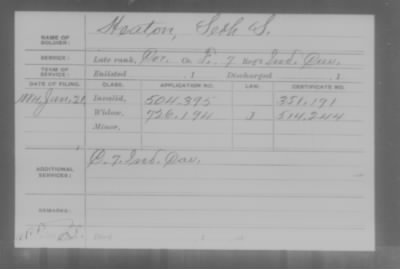 NAME OF SOLDIER: Heaton, Seth S.
SERVICE: Late rank, Co. F, 7 Reg't Ind. Cav.
TERM OF SERVICE: Enlisted , 1 Discharged , 1
DATE OF FILING. CLASS. APPLICATION NO. LAW. CERTIFICATE NO.
Jan. 21 Invalid, 504.395 351.191
Widow, 726.194 514.244
Minor,
ADDITIONAL SERVICES: 7. Ind. Cav.
REMARKS: